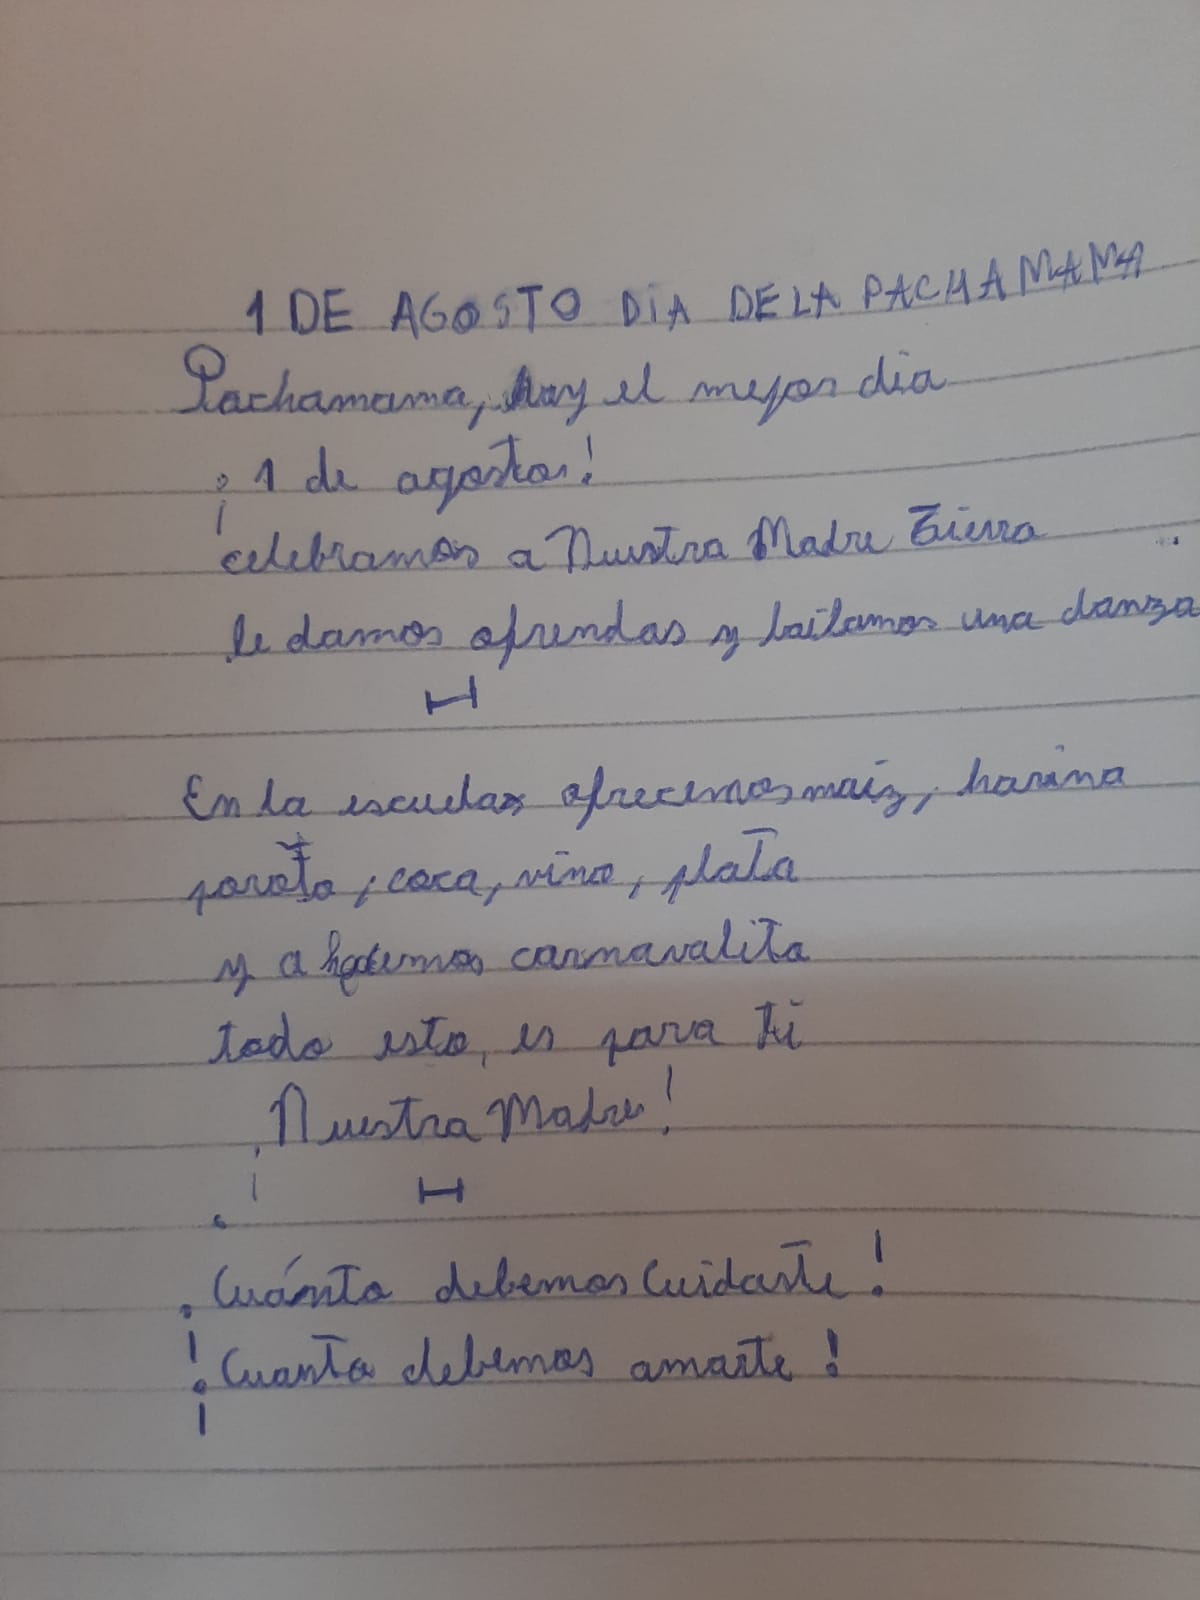 1 DE AGOSTO DIA DE LA PACHAMAMA
Pachamama, hay el mejor dia
¡1 de agosto!
celebramos a Nuestra Madre Tierra
le damos ofrendas y bailamos una danza
En la escuela ofrecemos maíz, harina
poroto, coca, vino, plata
y a hacemos carnavalito
todo esto, es para ti
¡Nuestra Madre!
¡Cuánto debemos Cuidarte!
¡Cuanto debemos amarte!